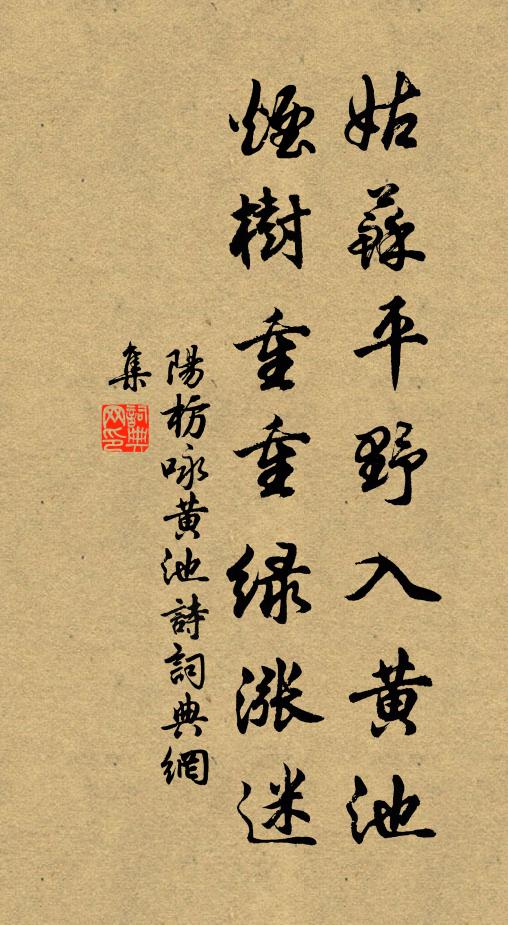 姑蘇平野入黄池
煙樹重重緑漲迷
陽枋咏黄池詩詞典網
集
詞典网印